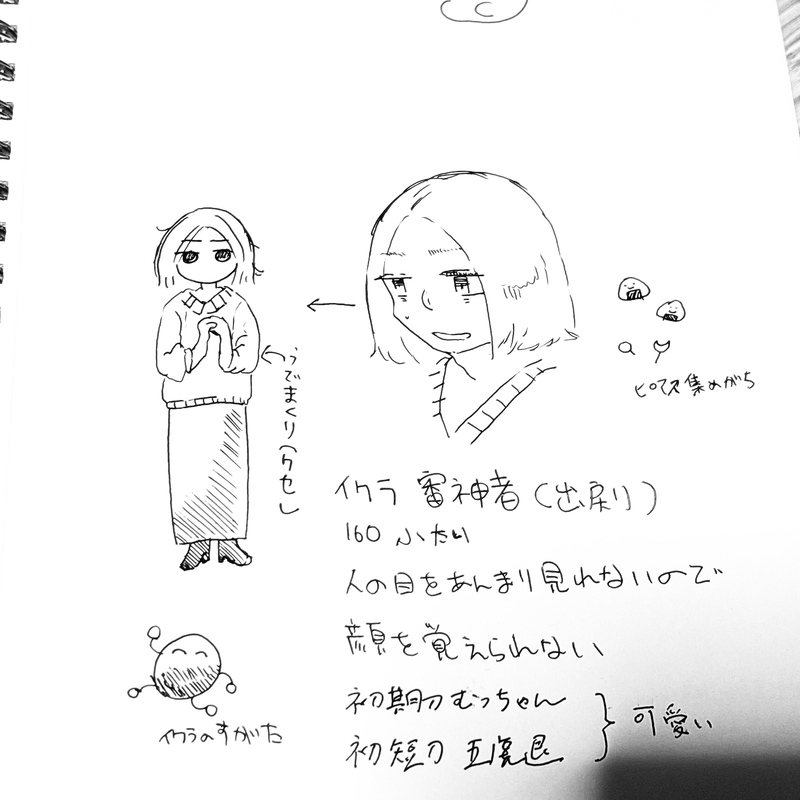 うでまくり(クセ)
ピアス集めがち
イクラ 審神者(出戻り)
160 ふたい
人の目をあんまり見れないので
顔を覚えられない
初期刀 むっちゃん
初短刀 五虎退
可愛い
イクラのすがた